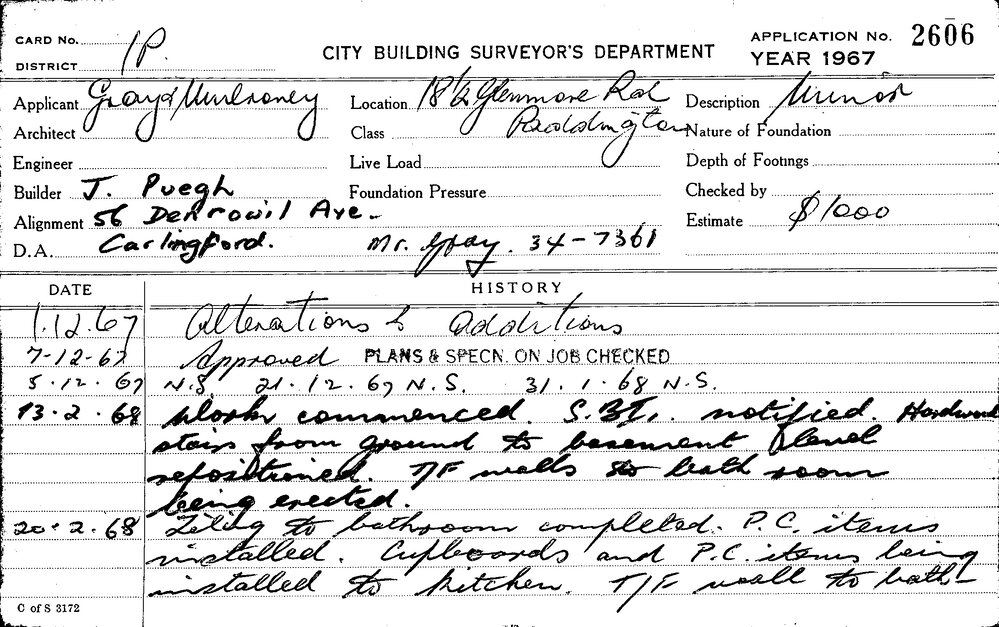 CARD No. 1P.
DISTRICT
CITY BUILDING SURVEYOR'S DEPARTMENT
APPLICATION No. 2606
YEAR 1967
Applicant Gray & Mulroney
Location 18½ Glenmore Rd
Paddington
Description Minor
Architect
Class
Nature of Foundation
Engineer
Live Load
Depth of Footings
Builder J. Puegh
Foundation Pressure
Checked by
Alignment 56 Denrowil Ave.
Estimate $1000
D.A. Carlingford. Mr. Gray. 34-7361
DATE
HISTORY
1.12.67 Alterations & additions
7-12-67 Approved PLANS & SPECN. ON JOB CHECKED
5.12.67 N.S 21.12.67 N.S. 31.1.68 N.S.
13.2.68 Work commenced. notified. Hardwood
stair from ground to basement level
repositioned. T/F walls to bath room
being erected.
20.2.68 Tiling to bathroom completed. P.C. items
installed. Cupboards and P.C. items being
installed to kitchen. T/F wall to bath-
C of S 3172